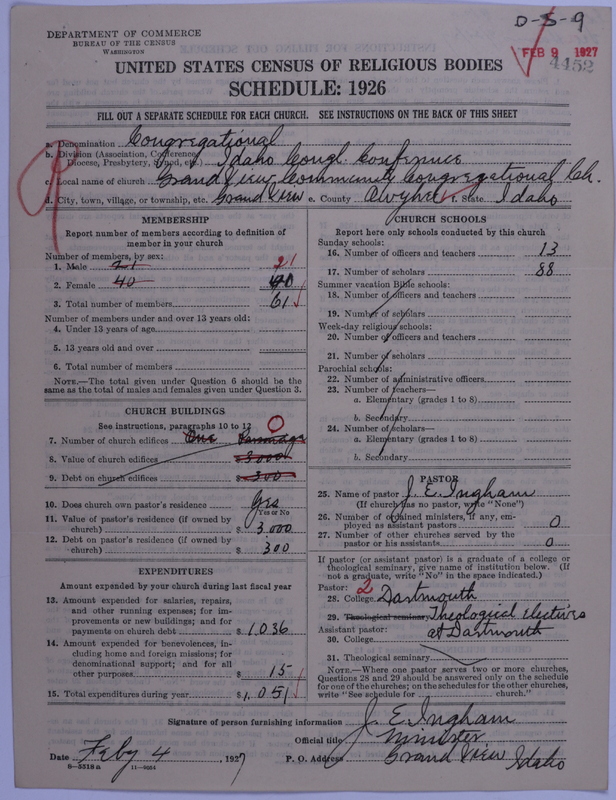 D-5-9
DEPARTMENT OF COMMERCE
BUREAU OF THE CENSUS
WASHINGTON
FEB 9 1927
4452
UNITED STATES CENSUS OF RELIGIOUS BODIES
SCHEDULE: 1926
FILL OUT A SEPARATE SCHEDULE FOR EACH CHURCH. SEE INSTRUCTIONS ON THE BACK OF THIS SHEET
a. Denomination Congregational
b. Division (Association, Conference, Diocese, Presbytery, Synod, etc.) Idaho Congl. Conference
c. Local name of church Grand View Community Congregational Ch.
d. City, town, village, or township, etc. Grand View e. County Owyhee f. State Idaho
MEMBERSHIP
Report number of members according to definition of
member in your church
Number of members, by sex:
1. Male 21 21
2. Female 40 40
3. Total number of members 61
Number of members under and over 13 years old:
4. Under 13 years of age
5. 13 years old and over
6. Total number of members
NOTE.—The total given under Question 6 should be the
same as the total of males and females given under Question 3.
CHURCH BUILDINGS
See instructions, paragraphs 10 to 12
0
7. Number of church edifices One Parsonage
8. Value of church edifices $ 3000
9. Debt on church edifices $ 300
10. Does church own pastor's residence yes
Yes or No
11. Value of pastor's residence (if owned by
church) $ 3,000
12. Debt on pastor's residence (if owned by
church) $ 300
EXPENDITURES
Amount expended by your church during last fiscal year
13. Amount expended for salaries, repairs,
and other running expenses; for im-
provements or new buildings; and for
payments on church debt $ 1,036
14. Amount expended for benevolences, in-
cluding home and foreign missions; for
denominational support; and for all
other purposes $ 15
15. Total expenditures during year $ 1,051
CHURCH SCHOOLS
Report here only schools conducted by this church
Sunday schools:
16. Number of officers and teachers 13
17. Number of scholars 88
Summer vacation Bible schools:
18. Number of officers and teachers
19. Number of scholars
Week-day religious schools:
20. Number of officers and teachers
21. Number of scholars
Parochial schools:
22. Number of administrative officers
23. Number of teachers—
a. Elementary (grades 1 to 8)
b. Secondary
24. Number of scholars—
a. Elementary (grades 1 to 8)
b. Secondary
PASTOR
25. Name of pastor J. E. Ingham
(If church has no pastor, write "None")
26. Number of ordained ministers, if any, em-
ployed as assistant pastors 0
27. Number of other churches served by the
pastor or his assistants 0
If pastor (or assistant pastor) is a graduate of a college or
theological seminary, give name of institution below. (If
not a graduate, write "No" in the space indicated.)
Pastor: 2
28. College Dartmouth
29. Theological seminary Theological electives
Assistant pastor: at Dartmouth
30. College
31. Theological seminary
NOTE.—Where one pastor serves two or more churches,
Questions 28 and 29 should be answered only on the schedule
for one of the churches; on the schedules for the other churches,
write "See schedule for church."
Signature of person furnishing information J. E. Ingham
Official title Minister
Date Feby 4, 1927 P. O. Address Grand View Idaho
8-5318 a 11-9064